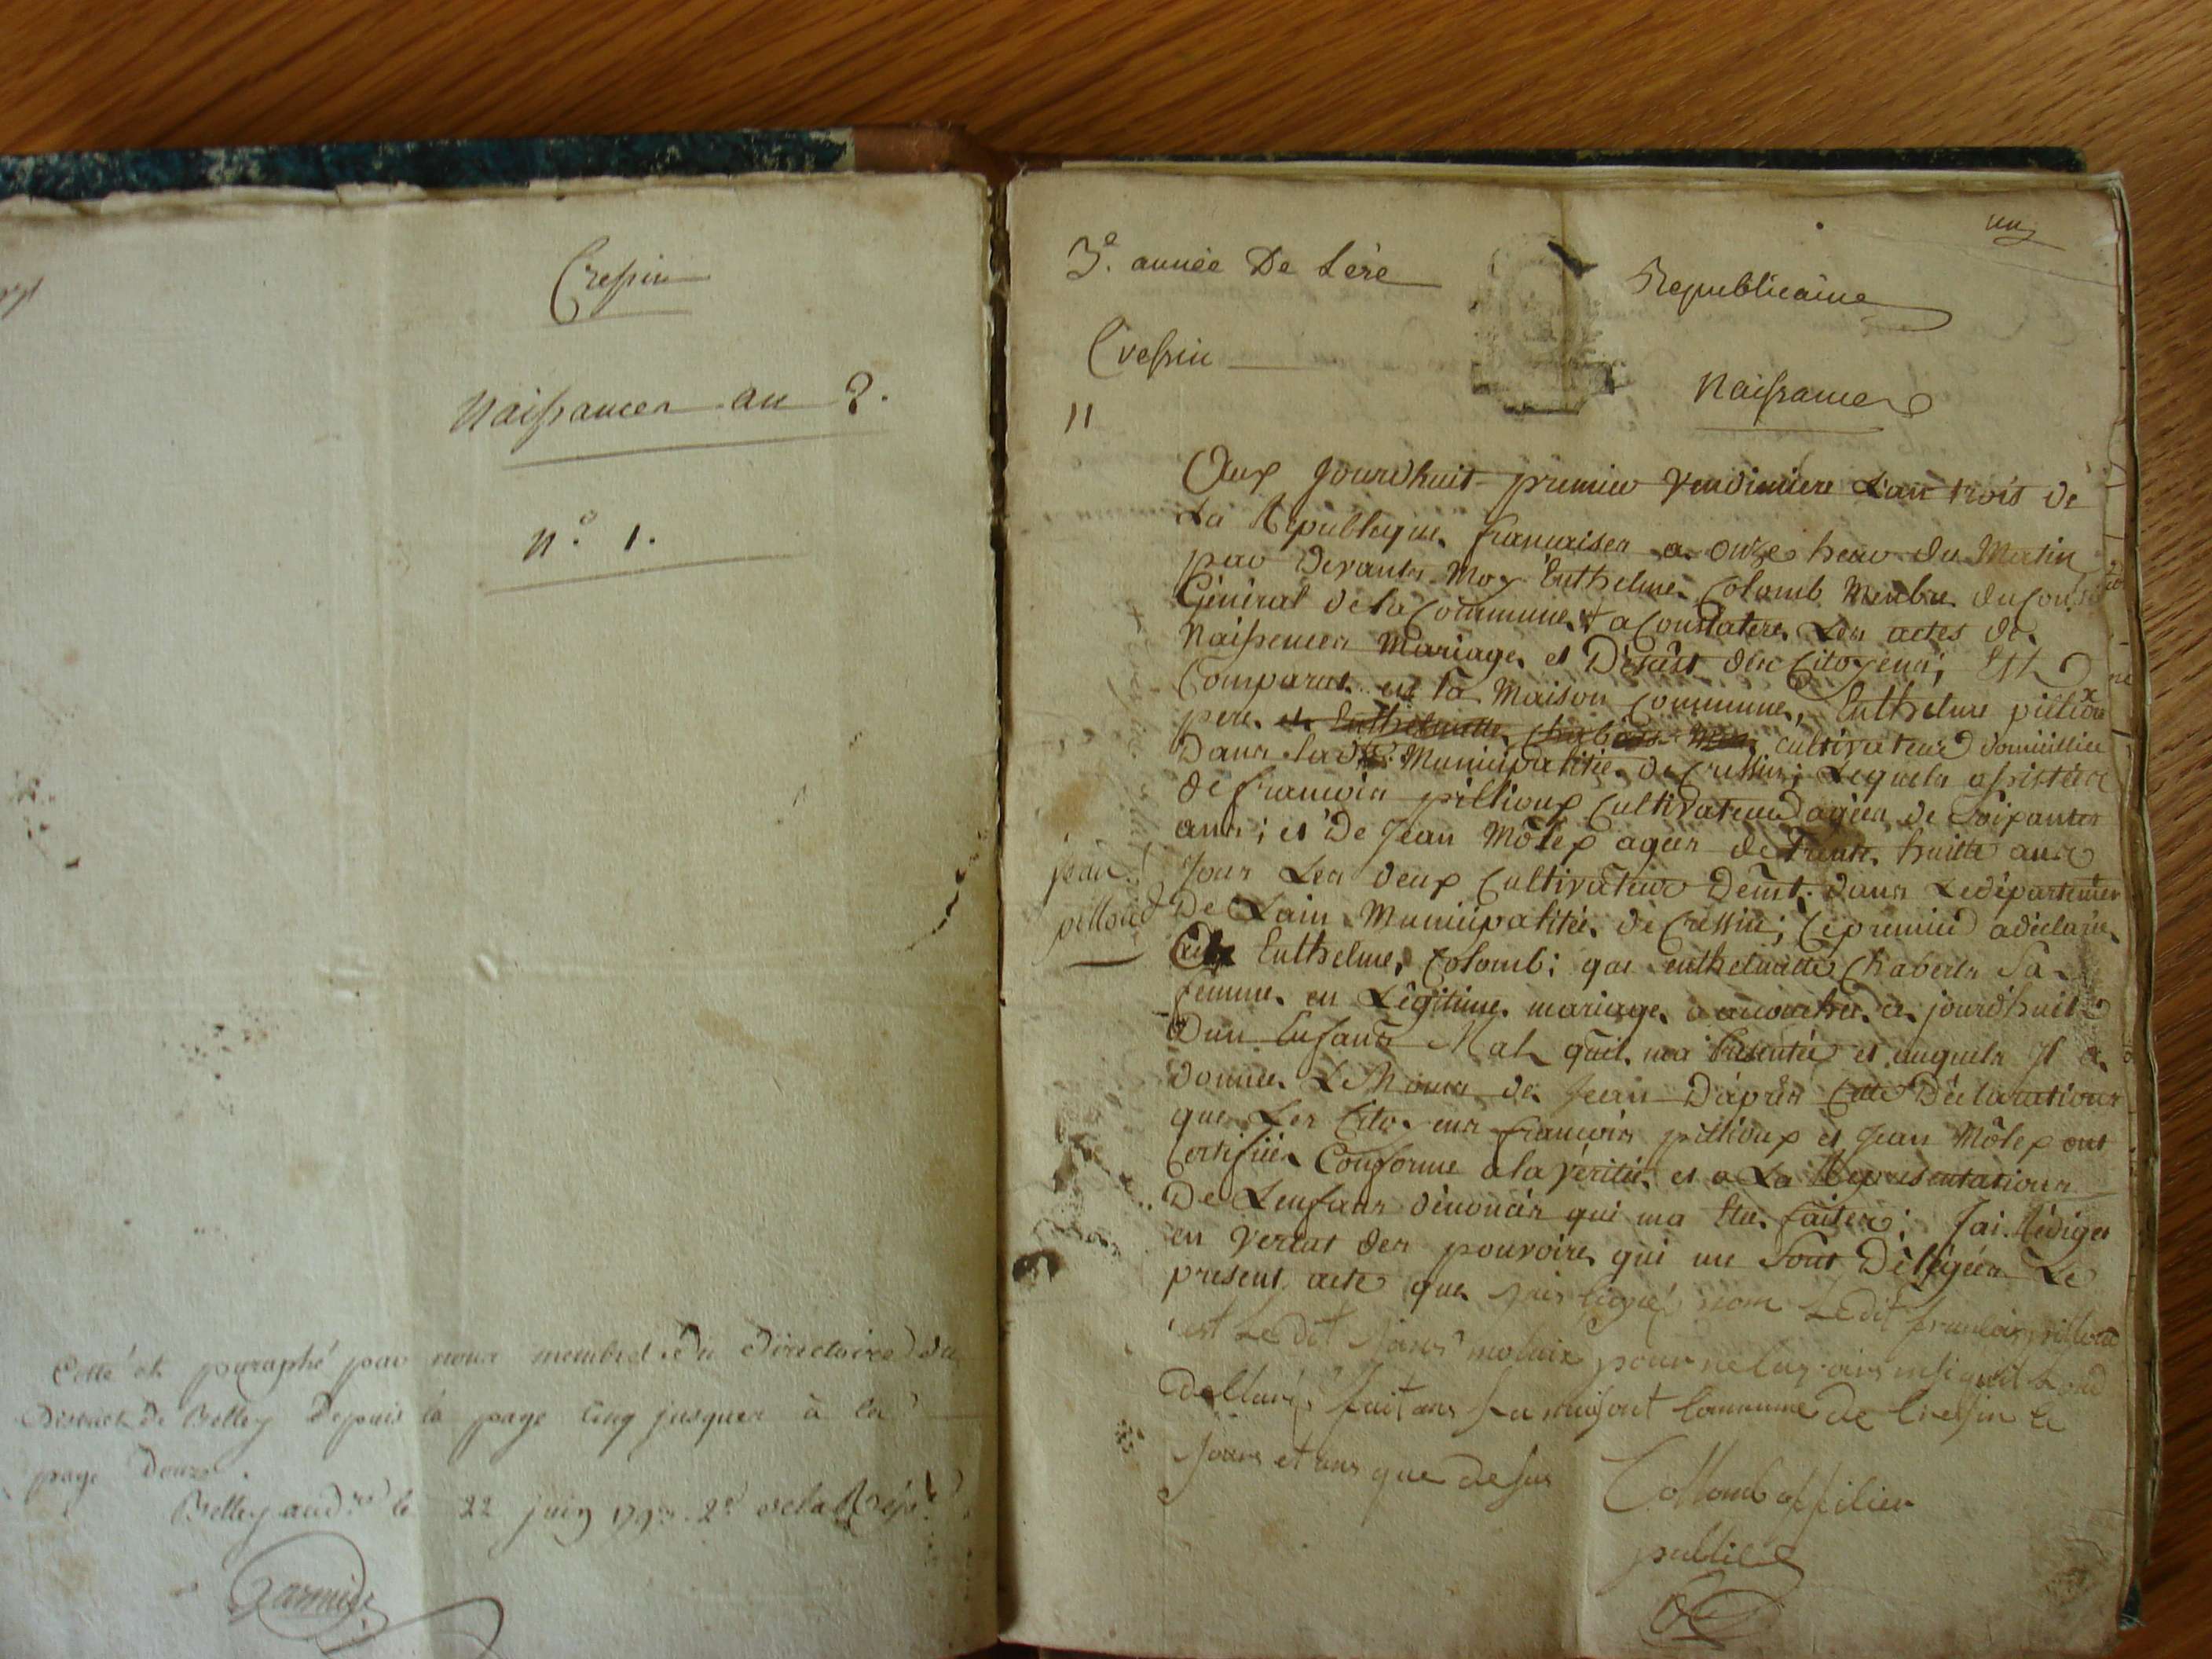 Cressin
Naissances an 3.
N.o 1.
Cotté et paraphé par nous membre du Directoire du
District de Belley Depuis la page cinq jusques à la
page Douze.
Belley aud.
le 22 juin
2e de la Rep.
3e. année De Lére
Republicaine
Cressin
Naissances
11
Aux Jourdhuit premier Vendimiere L'an trois de
La Republique francaises a onze heur du Matin
par Devants Moy Enthelme Colomb Membre du Cons
Général de la Commune + a Constatere Les actes de
Naissences Mariage et Décest des Citoyens; Est
Comparut en la Maison Commune, Enthelme
pere et Enthelmette cultivateur domicilliee
Dans lad. Municipalitié de Cressin; Lequels assistére
de francois pillioux Cultivateur agées de Soixantes
ans; et De Jean Môlex agées de Trente huitte ans
Jean
pilloud
Tous Les deux Cultivateur Demt. dans Ledépartemen
De Lain Municipalitée de Cressin; Ce premier adéclaré
Enthelme Colomb; que enthelmette Chaberts Sa
femme en Légitime mariage a accouchée a jourdhuit
Dun Enfant Mal quil ma Presentée et auquels Il a
donnee Le Noms de Jean Dáprés Cette Déclarations
que Les Cito. ens francois pillioux et Jean Môlex ont
Certifiiée Conforme a la véritée et a La Representations
De Lenfans dénoncés qui ma Etee faites; Jai Rédiges
en Vertut des pouvoire qui me Sont Délégées Le
present acte que jais signé nom Ledit francois
est Ledit
Dellaré fait ans La maisont Commune de Cressin le
Jours et ans que desus
Collomb offilier
public